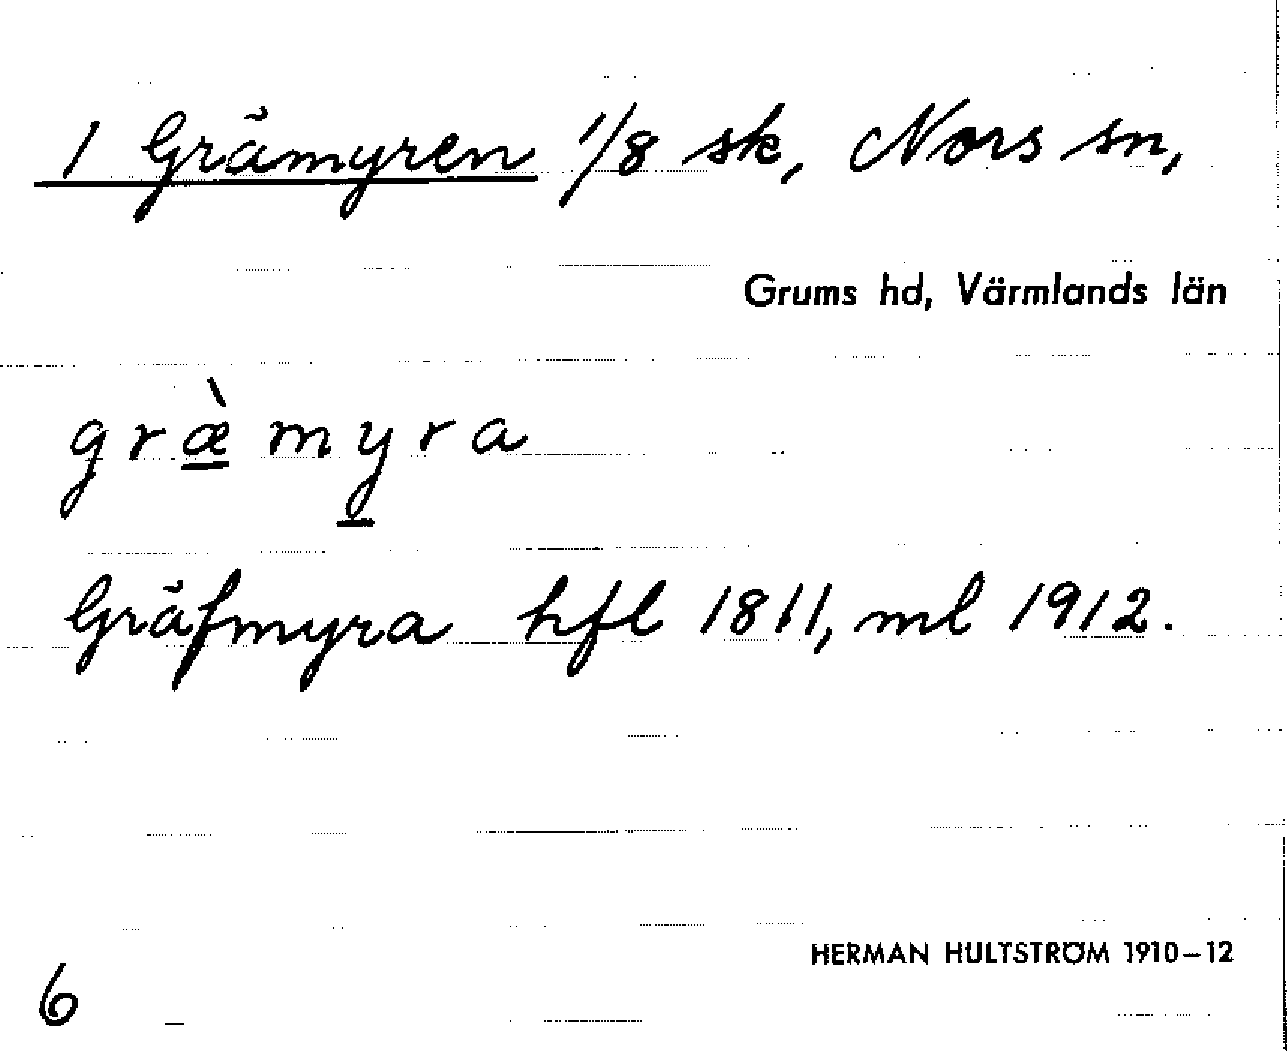 1 Grämyren 1/8 sk, Nors sn,
Grums hd, Värmlands län
græ̀myra
Gräfmyra hfl 1811, ml 1912.
HERMAN HULTSTRÖM 1910–12
6